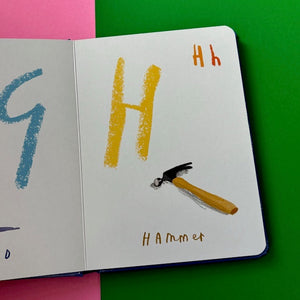 g
D
H
H h
HAmmer